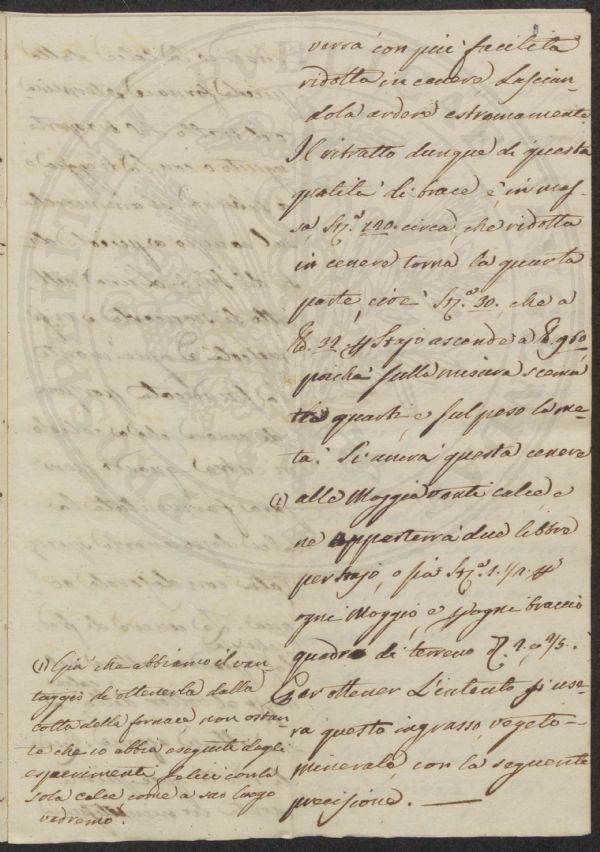 verrà con più facilità
ridotta in cenere Lascian-
dola ardere estremamente
Il ritratto dunque di questa
qualità di brace è in mas-
sa St.ª 120. circa, che ridotta
in cenere torna la quarta
parte, cioè St.ª 30. che a
℔. 32. Stajo ascende a ℔. 960
poichè sulla misura scema
tre quarti, e sul peso la me-
tà. Si unirà questa cenere
(1) alle Moggia venti calce, e
ne apparterrà due libbre
per stajo, o sia St.ª 1. 1/2
ogni Moggio, e p ogni braccio
quadro di terreno 2/5.
Per ottener L'intento si use-
rà questo ingrasso vegeto-
minerale, con la seguente
precisione. —
(1) Già che abbiamo il van-
taggio di ottenerla dalla
cotta della fornace, non ostan
te che io abbia eseguite degli
esperimenti felici con la
sola calce, come a suo luogo
vedremo.